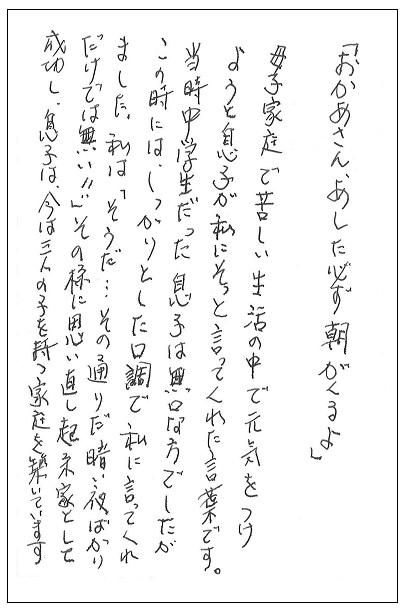 「おかあさん、あした必ず朝がくるよ」
母子家庭で苦しい生活の中で元気をつけ
ようと息子が私にそっと言ってくれた言葉です。
当時中学生だった息子は無口な方でしたが
この時には、しっかりとした口調で私に言ってくれ
ました。私は「そうだ…その通りだ暗い夜ばかり
だけでは無い!!」その様に思い直し起業家として
成功し、息子は、今は三人の子を持つ家庭を築いています